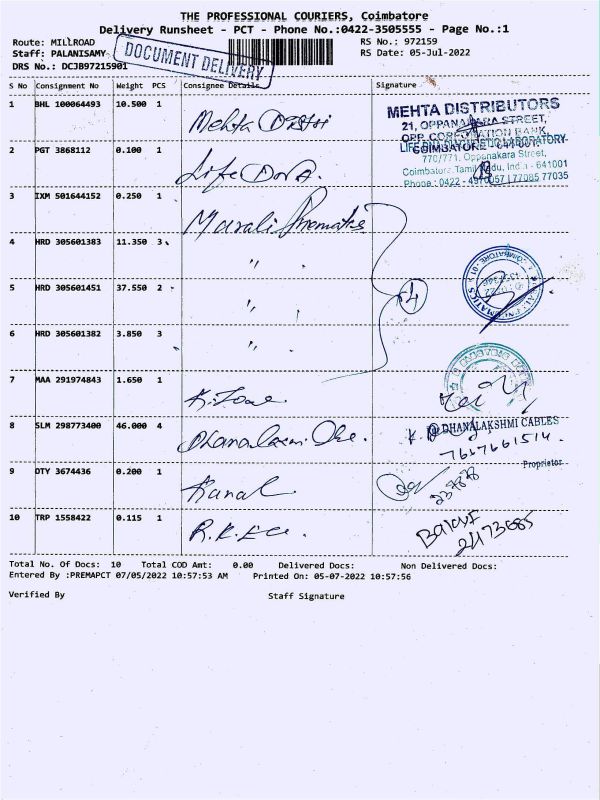 THE PROFESSIONAL COURIERS, Coimbatore
Delivery Runsheet - PCT - Phone No.:0422-3505555 - Page No.:1
Route: MILLROAD RS No.: 972159
Staff: PALANISAMY RS Date: 05-Jul-2022
DRS No.: DCJB97215901
DOCUMENT DELIVERY
S No Consignment No Weight PCS Consignee Details Signature
1 BHL 100064493 10.500 1 Mehta
MEHTA DISTRIBUTORS
21, OPPANAKARA STREET,
OPP. CORPORATION BANK
COIMBATORE - 641 001
2 PGT 3868112 0.100 1 Life
770/771, Oppanakara Street,
Coimbatore, Tamil Nadu, India - 641001
Phone : 0422 - 4970057 | 77085 77035
3 IXM 501644152 0.250 1 Murali
4 HRD 305601383 11.350 3 " "
5 HRD 305601451 37.550 2 " "
6 HRD 305601382 3.850 3 " "
7 MAA 291974843 1.650 1 K. Zone
8 SLM 298773400 46.000 4
DHANALAKSHMI CABLES
7667661514
Proprietor
9 OTY 3674436 0.200 1 Kanal
10 TRP 1558422 0.115 1 R.K.
Total No. Of Docs: 10 Total COD Amt: 0.00 Delivered Docs: Non Delivered Docs:
Entered By :PREMAPCT 07/05/2022 10:57:53 AM Printed On: 05-07-2022 10:57:56
Verified By Staff Signature